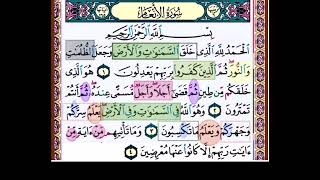 سُورَةُ الْأَنْعَامِ
بِسْمِ اللَّهِ الرَّحْمَٰنِ الرَّحِيمِ
الْحَمْدُ لِلَّهِ الَّذِي خَلَقَ السَّمَاوَاتِ وَالْأَرْضَ وَجَعَلَ الظُّلُمَاتِ
وَالنُّورَ ثُمَّ الَّذِينَ كَفَرُوا بِرَبِّهِمْ يَعْدِلُونَ ١ هُوَ الَّذِي
خَلَقَكُم مِّن طِينٍ ثُمَّ قَضَىٰ أَجَلًا وَأَجَلٌ مُّسَمًّى عِندَهُ ثُمَّ أَنتُمْ
تَمْتَرُونَ ٢ وَهُوَ اللَّهُ فِي السَّمَاوَاتِ وَفِي الْأَرْضِ يَعْلَمُ سِرَّكُمْ
وَجَهْرَكُمْ وَيَعْلَمُ مَا تَكْسِبُونَ ٣ وَمَا تَأْتِيهِم مِّنْ آيَةٍ مِّنْ
آيَاتِ رَبِّهِمْ إِلَّا كَانُوا عَنْهَا مُعْرِضِينَ ٤